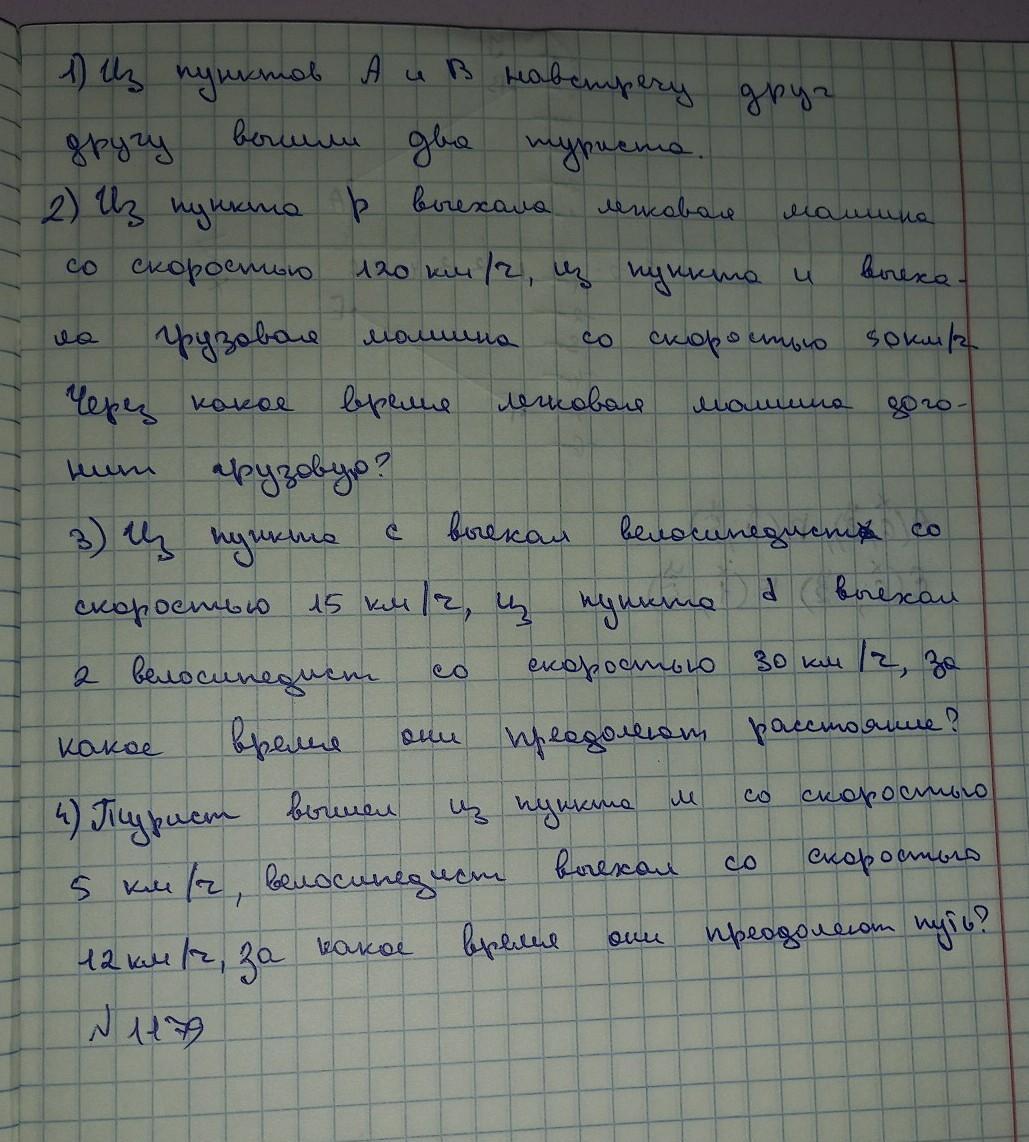 1) Из пунктов А и В навстречу друг
другу вышли два туриста.
2) Из пункта р выехала легковая машина
со скоростью 120 км/ч, из пункта и выеха-
ла грузовая машина со скоростью 50 км/ч
Через какое время легковая машина дого-
нит грузовую?
3) Из пункта с выехал велосипедист со
скоростью 15 км/ч, из пункта d выехал
2 велосипедист со скоростью 30 км/ч, за
какое время они преодолеют расстояние?
4) Турист вышел из пункта м со скоростью
5 км/ч, велосипедист выехал со скоростью
12 км/ч, за какое время они преодолеют путь?
N 1179